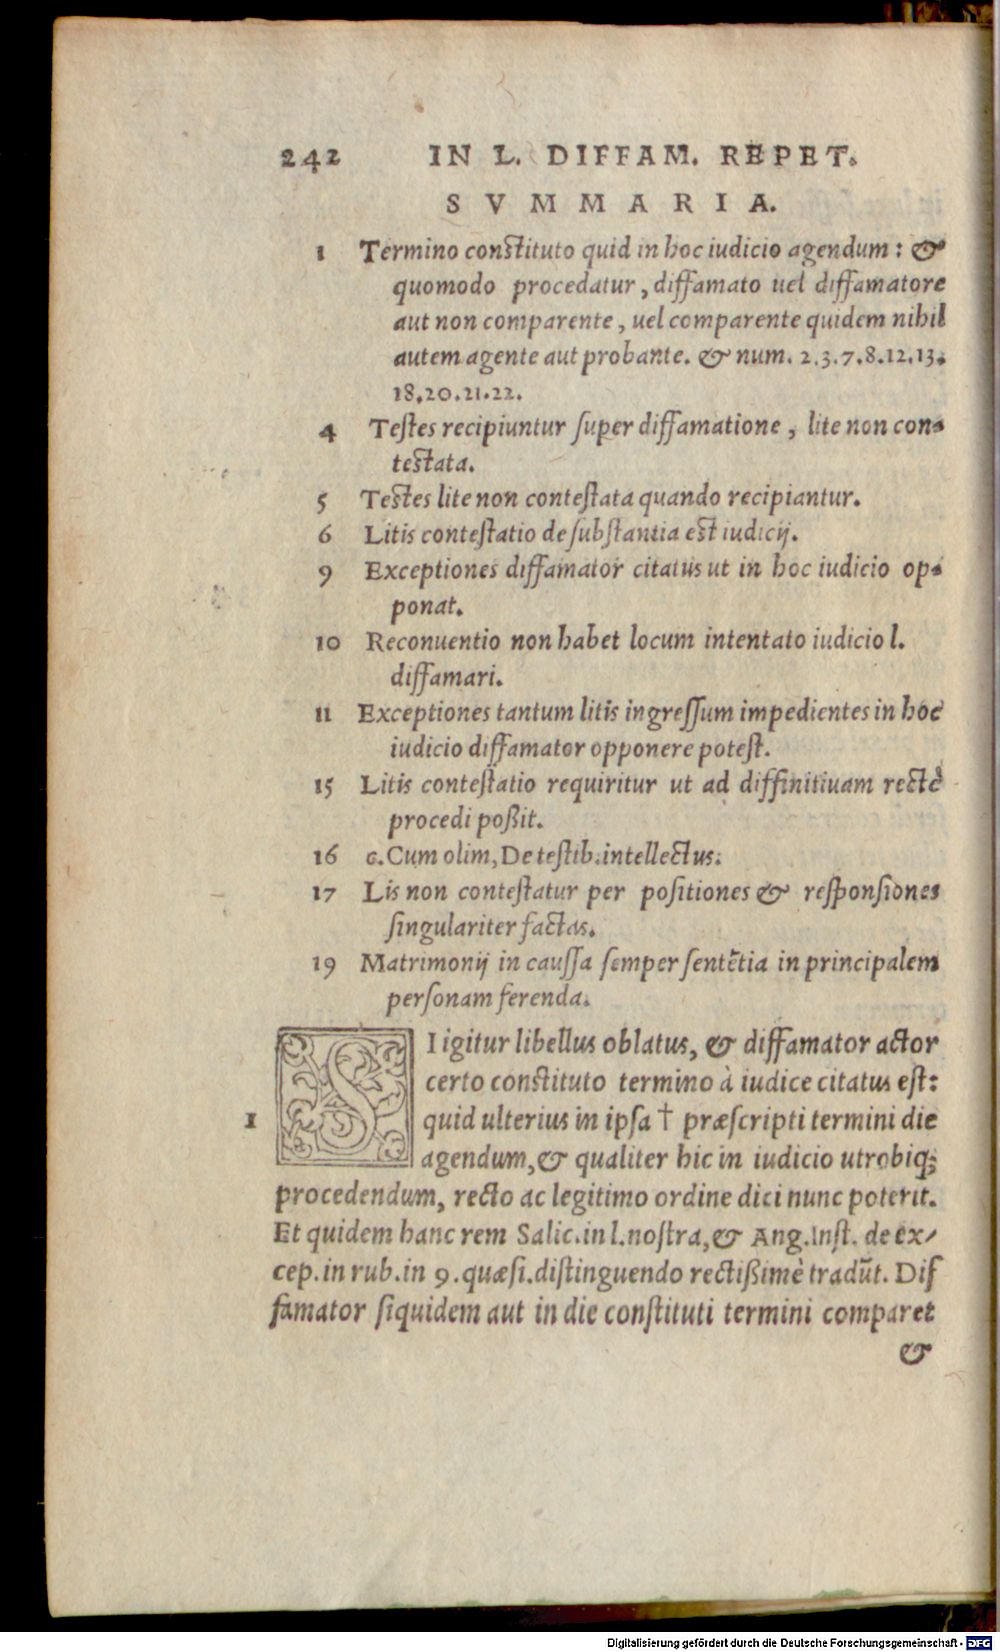 242 IN L. DIFFAM. REPET.
SVMMARIA.
1 Termino constituto quid in hoc iudicio agendum: &
quomodo procedatur, diffamato uel diffamatore
aut non comparente, uel comparente quidem nihil
autem agente aut probante. & num. 2.3.7.8.12.13.
18.20.21.22.
4 Testes recipiuntur super diffamatione, lite non con-
testata.
5 Testes lite non contestata quando recipiantur.
6 Litis contestatio de substantia est iudicij.
9 Exceptiones diffamator citatus ut in hoc iudicio op-
ponat.
10 Reconuentio non habet locum intentato iudicio l.
diffamari.
11 Exceptiones tantum litis ingressum impedientes in hoc
iudicio diffamator opponere potest.
15 Litis contestatio requiritur ut ad diffinitiuam rectè
procedi poßit.
16 c. Cum olim, De testib. intellectus.
17 Lis non contestatur per positiones & responsiones
singulariter factas.
19 Matrimonij in caussa semper sentētia in principalem
personam ferenda.
SI igitur libellus oblatus, & diffamator actor
certo constituto termino à iudice citatus est:
1 quid ulterius in ipsa † præscripti termini die
agendum, & qualiter hic in iudicio utrobiq;
procedendum, recto ac legitimo ordine dici nunc poterit.
Et quidem hanc rem Salic. in l. nostra, & Ang. Inst. de ex-
cep. in rub. in 9. quæsi. distinguendo rectißimè tradūt. Dif
famator siquidem aut in die constituti termini comparet
&
Digitalisierung gefördert durch die Deutsche Forschungsgemeinschaft - DFG